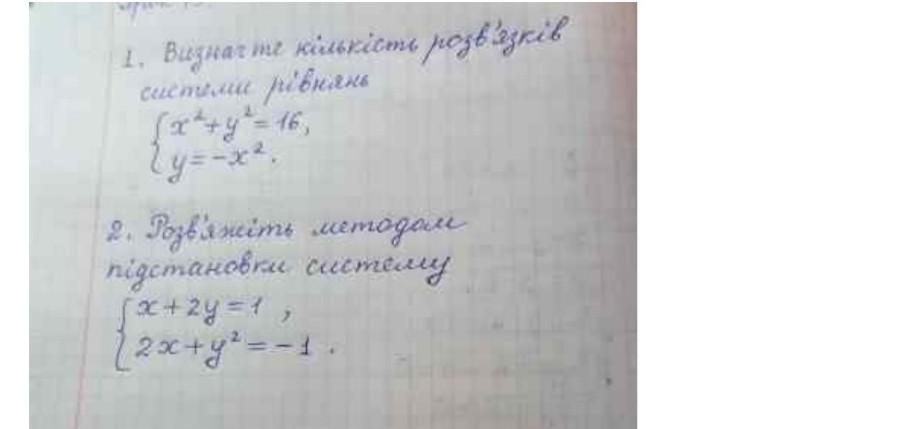 1. Визначте кількість розв'язків
системи рівнянь
{x² + y² = 16,
{y = -x².
2. Розв'яжіть методом
підстановки систему
{x + 2y = 1 ,
{2x + y² = -1 .